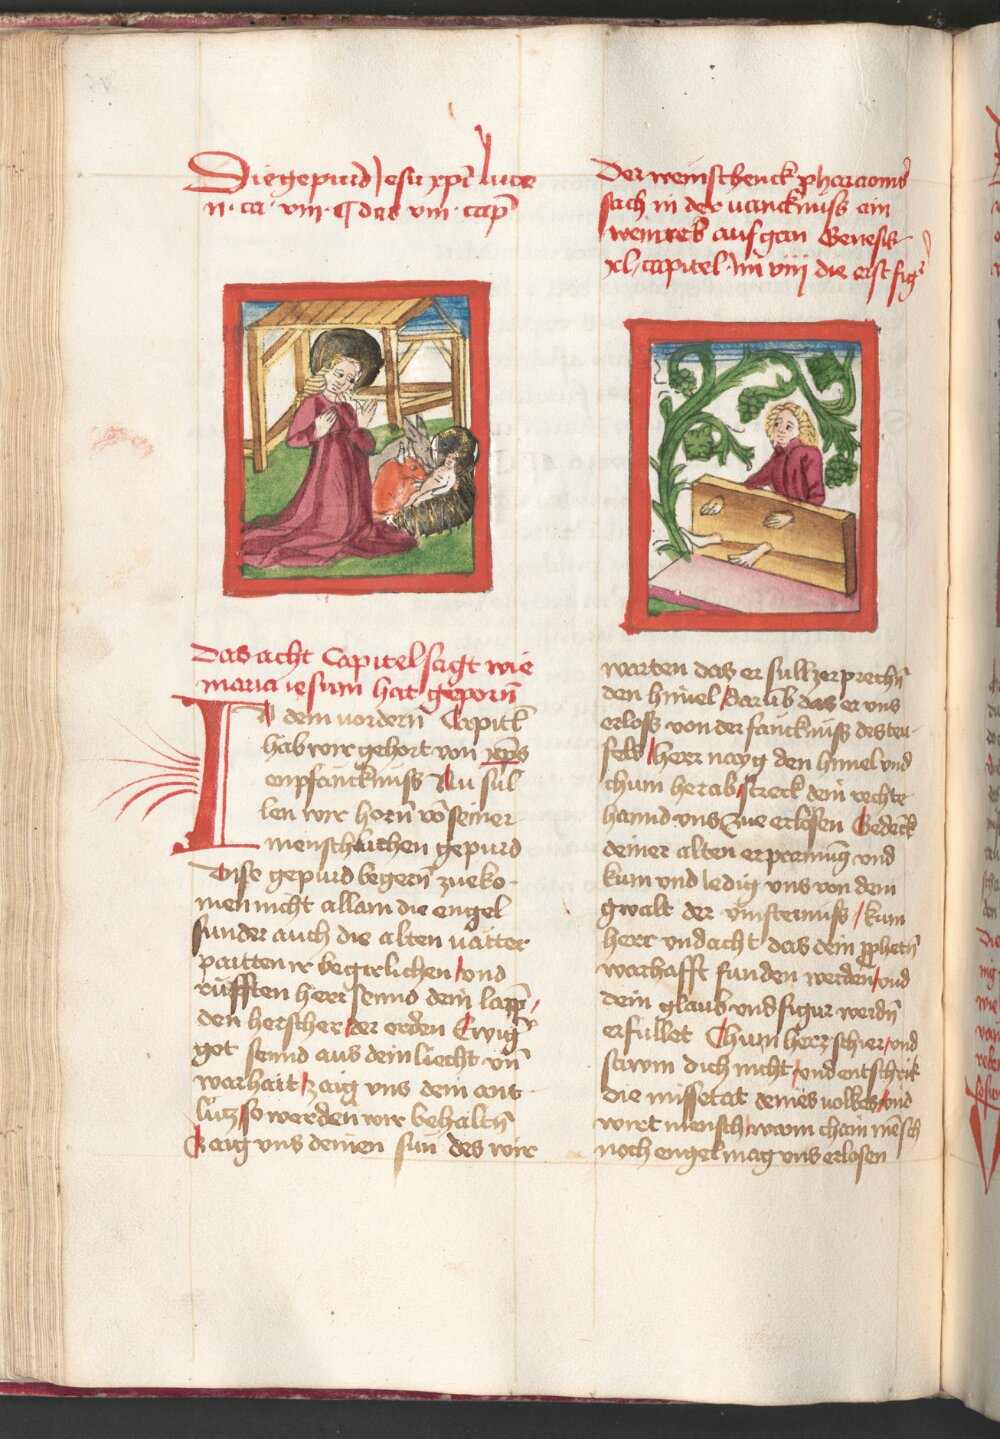 Die gepurd Jesu xpi luce
ii · ca · viii · ¶ das viii · cap̄
Das acht Capitel sagt wie
maria iesum hat geporn̄
In dem vordern̄ Capitl̄
hab wir gehort von xp̄s
enpfancknuss Nu sul
len wir horn̄ vō seiner
menschlichen gepurd
Dise gepurd begern̄ zue ko-
men nicht allain die engel
sunder auch die alten vatter
paitten ir begirlichen / vnd
rüfften herr sennd dein lapp̄ /
den herscher der erden Ewiḡ
got sennd aus dein liecht vn̄
warhait / zaig vns dein ant
lütz / so werden wir behaltn̄
Zaig vns deinen sun des wir
Der weinschenck pharaonis
sach in der vancknuss ain
weinreb auf gan Genesis
xl / capitel · im viii die erst fiḡ
warten das er sull zerprechn̄
den himel / darūb das er vns
erloss von der fanckniss des teu-
fels / herr nayg den himel vnd
chum herab / streck dein rechte
hannd vns zue erlosen Gedēck
deiner alten erpremūg vnd
kum vnd ledig vns von dem
gwalt der vinsternuss / kum
herr vnd acht das dein pphetn̄
warhafft funden werden / vnd
dein glaub vnd figur werdn̄
erfullet Chum herr schier / vnd
sawm dich nicht / vnd entschrik
die missetat deines volkes / vnd
wirt mensch / wann chain mēsch
noch engel mag vns erlosen